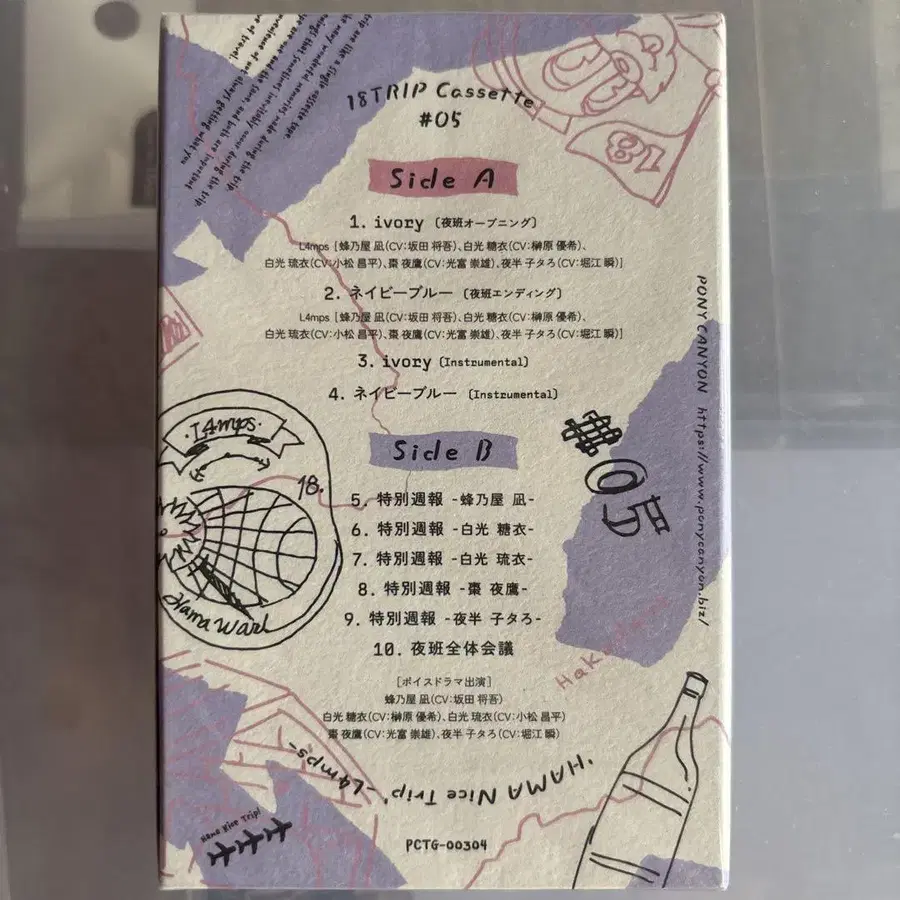 trip are like a single cassette tape.
the many wonderful memories made during the trip.
things that sometimes inevitably occur during the trip.
tape are one and the same, and both are important
not always getting what you
of travel.
18TRIP Cassette
#05
Side A
1. ivory [夜班オープニング]
L4mps [蜂乃屋 凪(CV:坂田 将吾)、白光 糖衣(CV:榊原 優希)、
白光 琉衣(CV:小松 昌平)、棗 夜鷹(CV:光富 崇雄)、夜半 子タろ(CV:堀江 瞬)]
2. ネイビーブルー [夜班エンディング]
L4mps [蜂乃屋 凪(CV:坂田 将吾)、白光 糖衣(CV:榊原 優希)、
白光 琉衣(CV:小松 昌平)、棗 夜鷹(CV:光富 崇雄)、夜半 子タろ(CV:堀江 瞬)]
3. ivory [Instrumental]
4. ネイビーブルー [Instrumental]
Side B
5. 特別週報 -蜂乃屋 凪-
6. 特別週報 -白光 糖衣-
7. 特別週報 -白光 琉衣-
8. 特別週報 -棗 夜鷹-
9. 特別週報 -夜半 子タろ-
10. 夜班全体会議
[ボイスドラマ出演]
蜂乃屋 凪(CV:坂田 将吾)
白光 糖衣(CV:榊原 優希)、白光 琉衣(CV:小松 昌平)
棗 夜鷹(CV:光富 崇雄)、夜半 子タろ(CV:堀江 瞬)
PONY CANYON https://www.ponycanyon.biz/
#05
18
·L4mps·
18.
Hama Ward
'HAMA Nice Trip' -L4mps-
Hama Nice Trip!
PCTG-00304